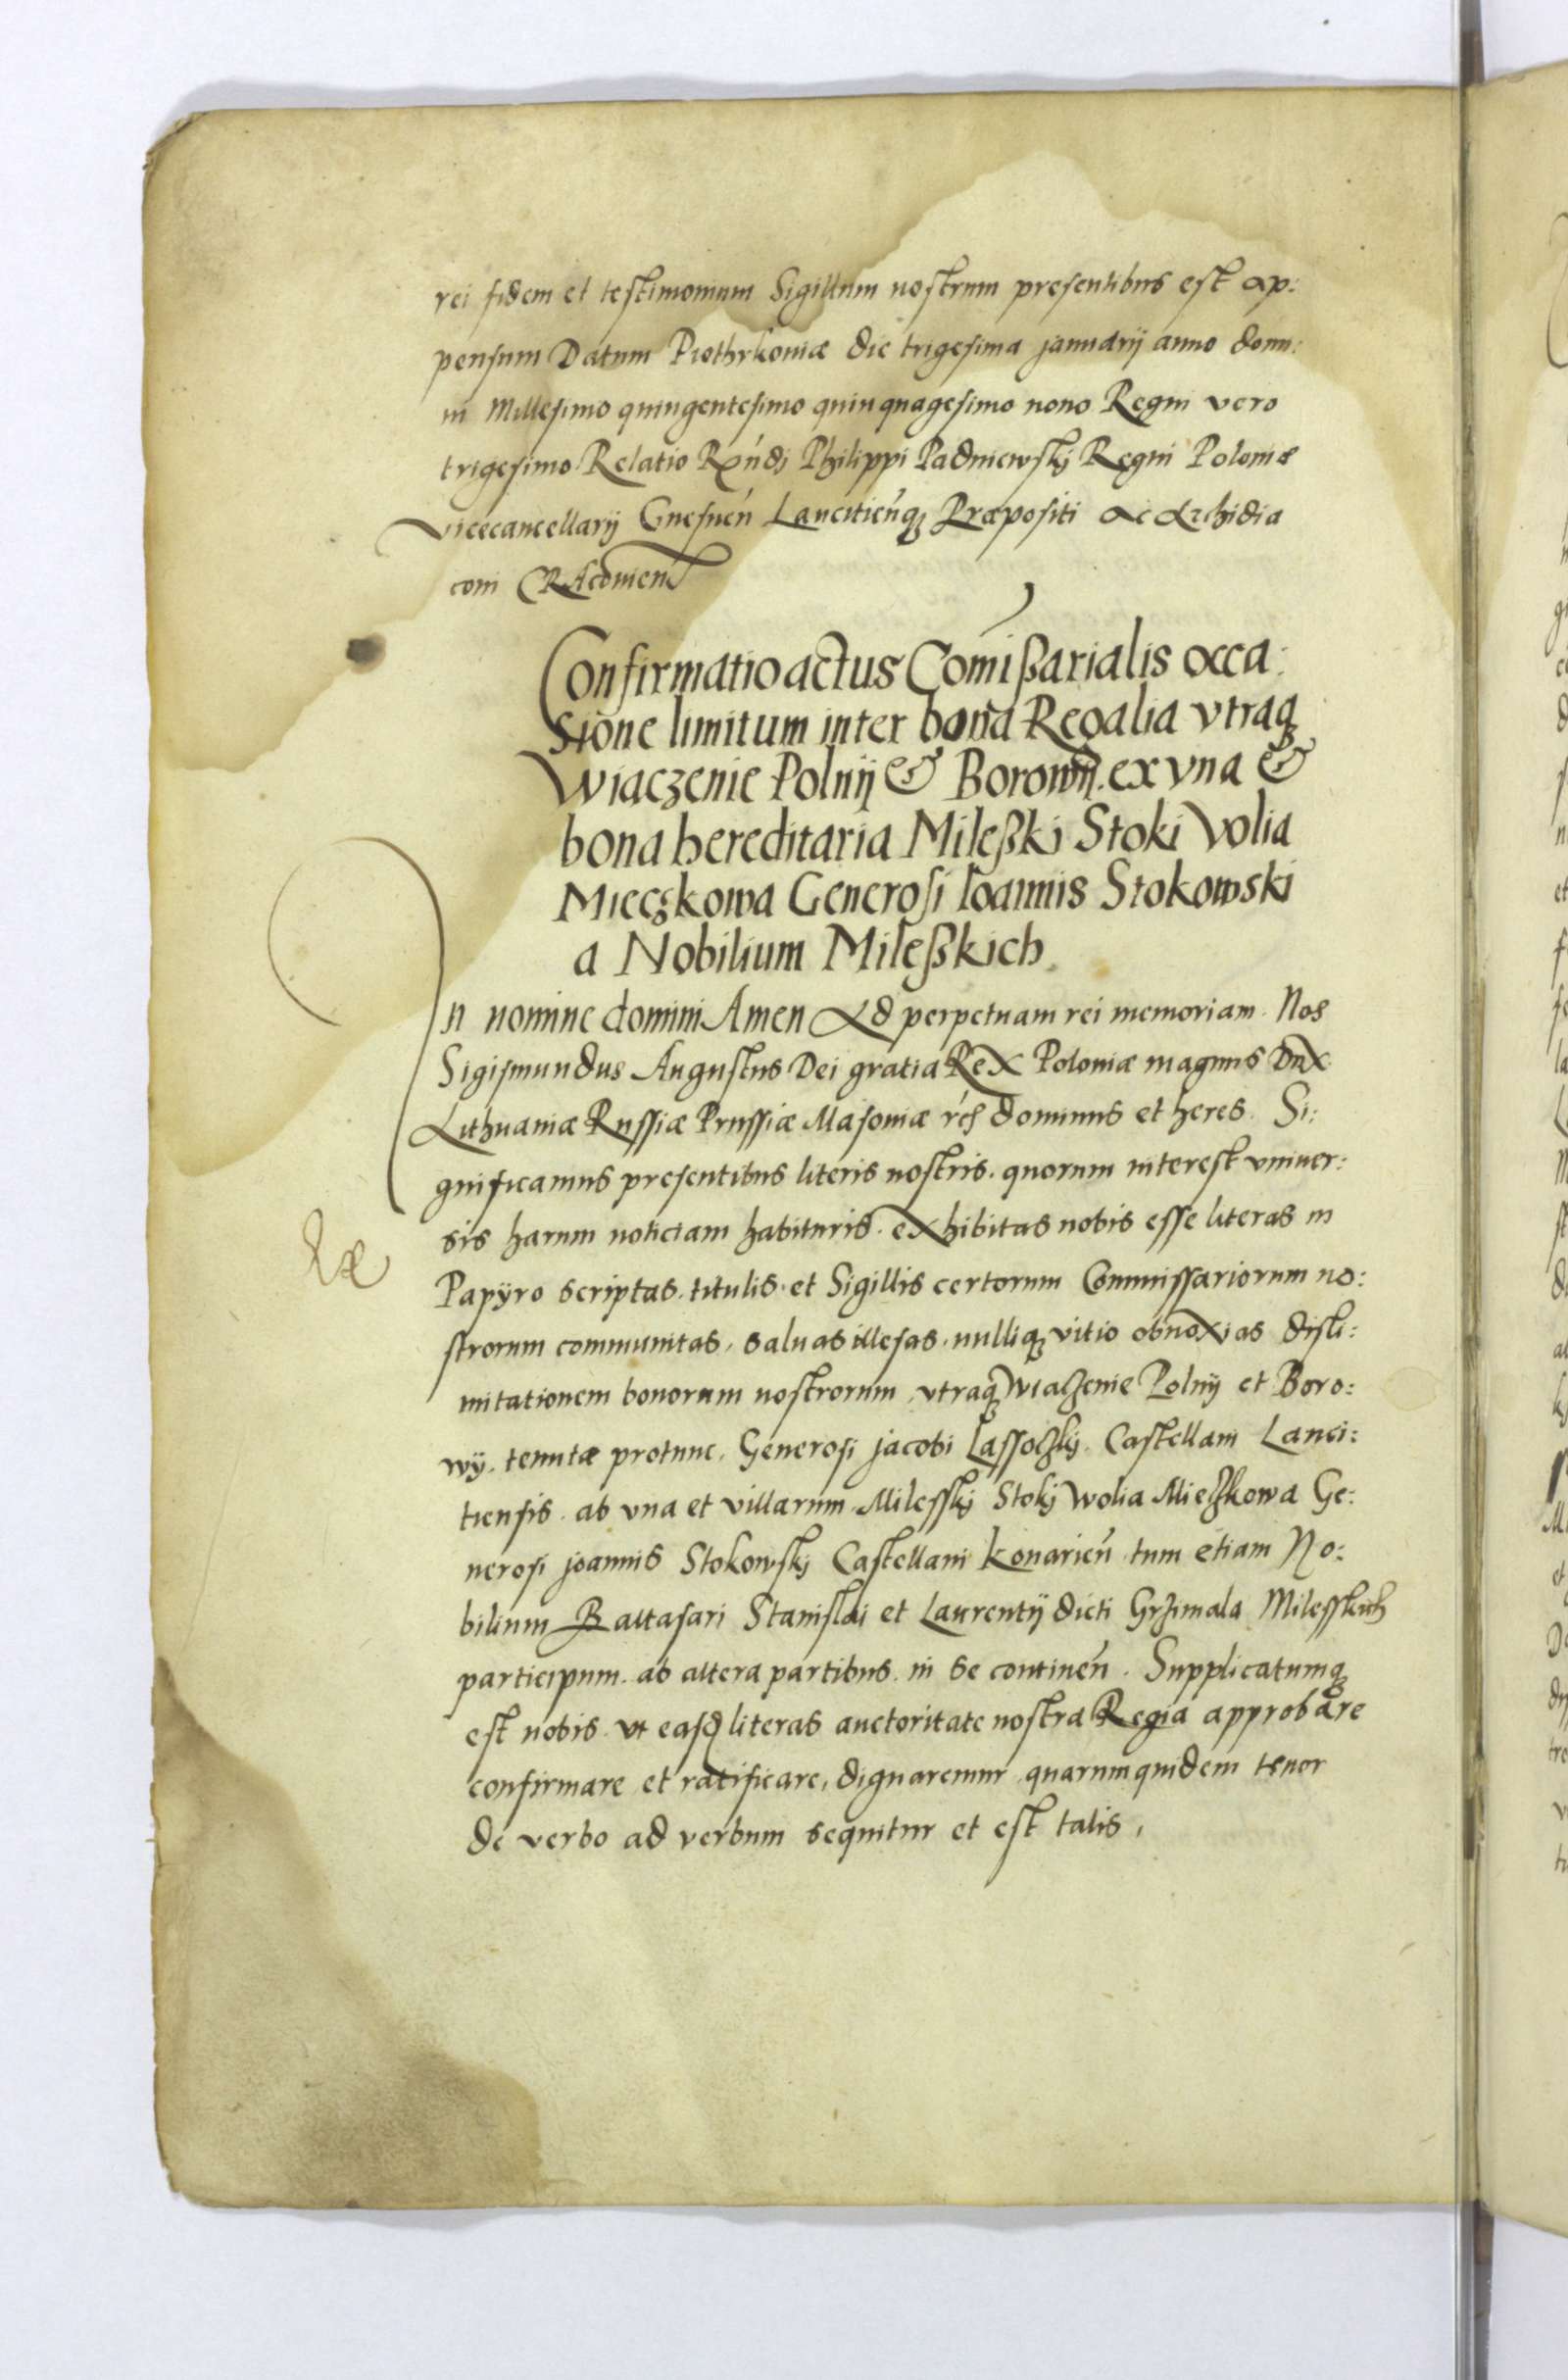 rei fidem et testimonium Sigillum nostrum presentibus est ap:
pensum Datum Piothrkoviæ die trigesima januarij anno domi:
ni Millesimo quingentesimo quinquagesimo nono Regni vero
trigesimo Relatio Rńdi Philippi Padniewskj Regni Poloniæ
vicecancellarij Gnesneń Lancitieńq́ȝ Præpositi ac Archidia
coni CRAcovien
Confirmatio actus Comißarialis occa:
sione limitum inter bona Regalia vtraqȝ
Wiaczenie Polnij & Borowij. ex vna &
bona hereditaria Mileßki Stoki Volia
Mieczkowa Generosi Ioannis Stokowski
a Nobilium Mileßkich
In nomine domini Amen Ad perpetuam rei memoriam. Nos
Sigismundus Augustus Dei gratia Rex Poloniæ magnus Dux
Lithuaniæ Russiæ Prussiæ Masoviæ dominus et heres. Si:
gnificamus presentibus literis nostris. quorum interest vniver:
sis harum noticiam habituris. exhibitas nobis esse literas in
Papÿro scriptas. titulis et Sigillis certorum Commissariorum no:
strorum communitas, salvas illesas. nulliqȝ vitio obnoxias disli:
mitationem bonorum nostrorum vtraqȝ Wiaczenie Polnij et Boro:
wÿ. tenutæ protunc. Generosi jacobi Lassoczkj. Castellani Lanci:
tiensis. ab vna et villarum Milesskj Stokj Wolia Mieczkowa Ge:
nerosi joannis Stokowskj Castellani Konarień tum etiam No:
bilium Baltasari Stanislai et Laurentij dicti Grzimala Milesskich
participum. ab altera partibus. in se contineń. Supplicatumqȝ
est nobis vt easd literas auctoritate nostra Regia approbare
confirmare et ratificare, dignaremur quarumquidem tenor
de verbo ad verbum sequitur et est talis,